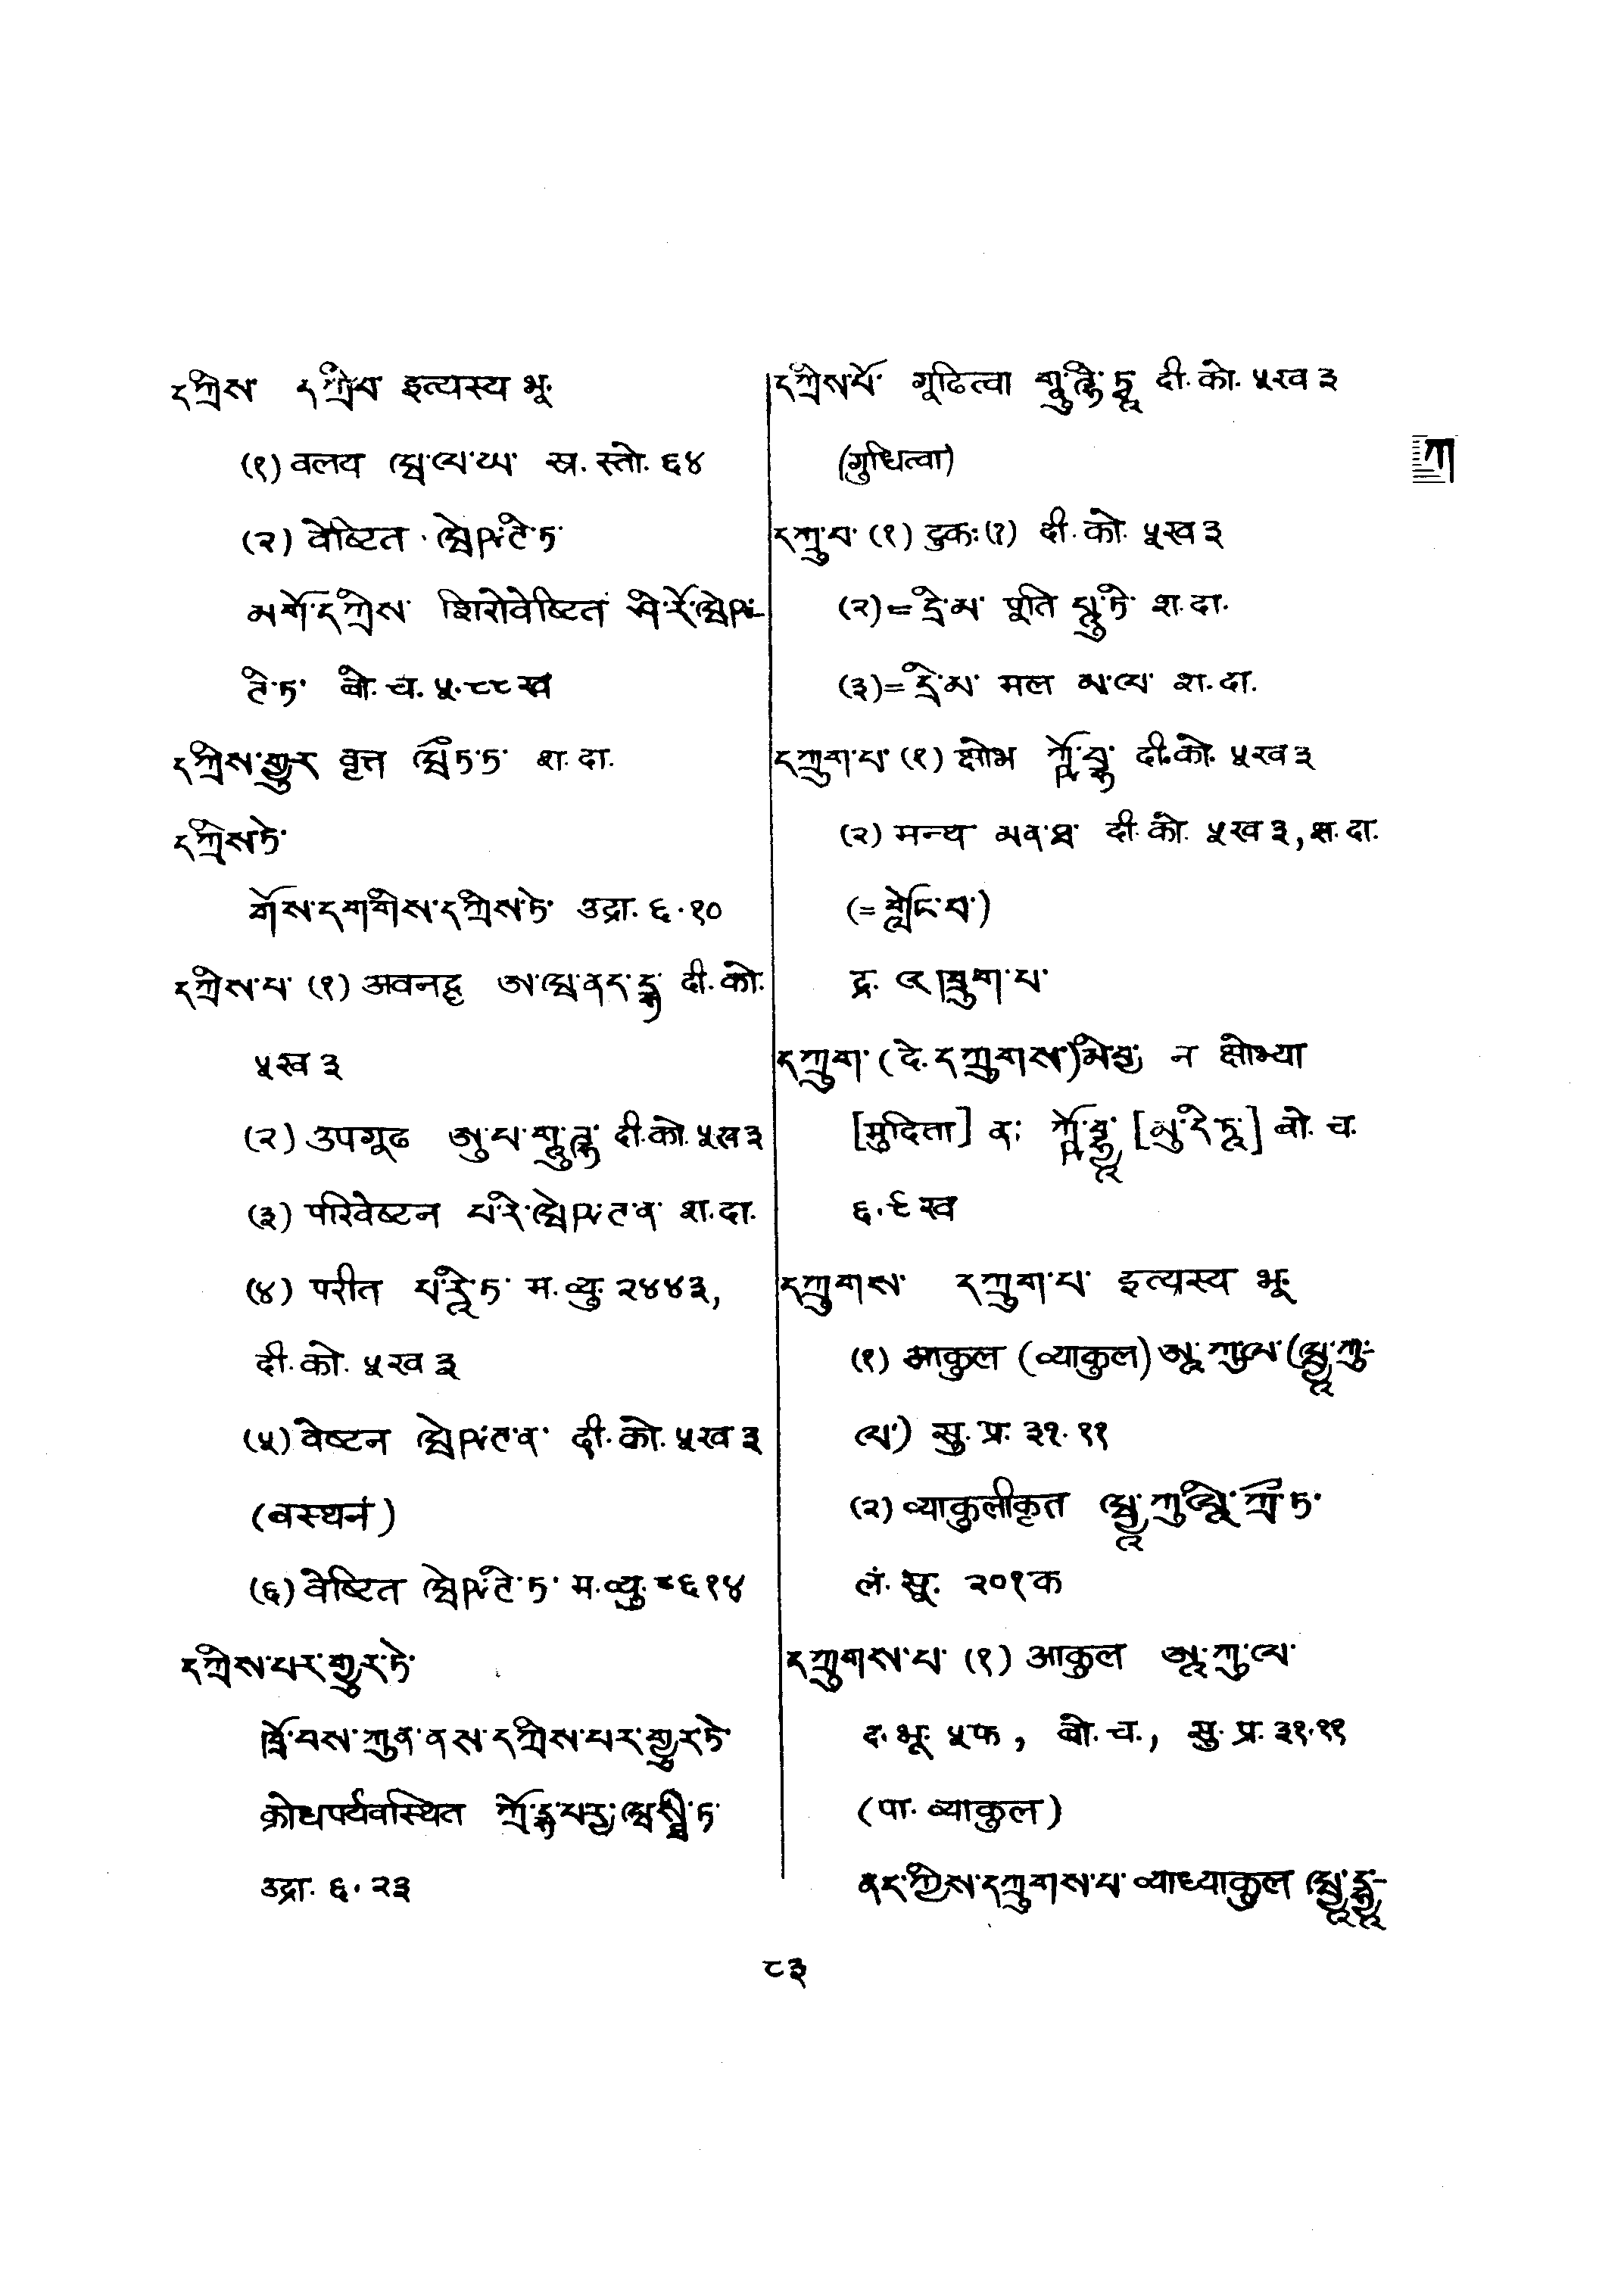 དཀྲིས་ དཀྲིབ་ इत्यस्य भू.
(१) वलय ཝ་ལ་ཡ་ स्र. स्तो. ६४
(२) वेष्टित ཝེཥྚི་ཏ་
མགོ་དཀྲིས་ शिरोवेष्टित ཤི་རོ་ཝེཥ-
ཊི་ཏ་ बो. च. ५.८८ ख
དཀྲིས་གྱུར वृत्त ཝྲྀཏ་ཏ་ श. दा.
དཀྲིས་ཏེ་
གོས་དག་གིས་དཀྲིས་ཏེ་ उद्रा. ६.१०
དཀྲིས་པ་ (१) अवनद्ध ཨ་ཝ་ནད་དྷ་ दी. को.
५ख ३
(२) उपगूढ ཨུ་པ་གཱུ་ཌྷ་ दी. को. ५ख३
(३) परिवेष्टन པ་རི་ཝེཥ་ཊ་ན་ श. दा.
(४) परीत པ་རཱི་ཏ་ म. व्यु. २४४३,
दी. को. ५ख ३
(५) वेष्टन ཝེཥ་ཊ་ན་ दी. को. ५ख ३
(वस्थनं)
(६) वेष्टित ཝེཥ་ཊི་ཏ་ म. व्यु. ८६१४
དཀྲིས་པར་གྱུར་ཏེ་
ཁྲོ་བས་ཀུན་ནས་དཀྲིས་པར་གྱུར་ཏེ་
क्रोधपर्यवस्थित ཀྲོ་དྷ་པརྱ་ཝསྠི་ཏ
उद्रा. ६.२३
དཀྲིས་པོ་ गूढित्वा གཱུ་ཌྷི་ཏྭཱ दी. को. ५ख ३
(गुधित्वा)
ཀ
དཀྲུ་བ་ (१) दुकः (?) दी. को. ५ख ३
(२) = དྲི་མ་ पूति པཱུ་ཏི་ श. दा.
(३) = དྲི་མ་ मल མ་ལ་ श. दा.
དཀྲུག་པ་ (१) क्षोभ ཀྵོ་བྷ་ दी. को. ५ख ३
(२) मन्थ མན་ཐ་ दी. को. ५ख ३, श. दा.
(= གླེང་བ་)
द्र. འཁྲུག་པ་
དཀྲུག་ (दे. དཀྲུགས་) མི་བྱ་ न क्षोभ्या
[मुदिता] ན་ ཀྵོ་བྷྱཱ [མུ་དི་ཏཱ་] बो. च.
६.९ख
དཀྲུགས་ དཀྲུག་པ་ इत्यस्य भू.
(१) आकुल (व्याकुल) ཨཱ་ཀུ་ལ་ (ཝྱཱ་ཀུ-
ལ་) सु. प्र. ३१.११
(२) व्याकुलीकृत ཝྱཱ་ཀུ་ལཱི་ཀྲྀ་ཏ་
लं. सू. २०१क
དཀྲུགས་པ་ (१) आकुल ཨཱ་ཀུ་ལ་
द. भू. ५फ, बो. च., सु. प्र. ३१.११
(पा. व्याकुल)
ནད་ཀྱིས་དཀྲུགས་པ་ व्याध्याकुल ཝྱཱ་དྷྱཱ-
८३